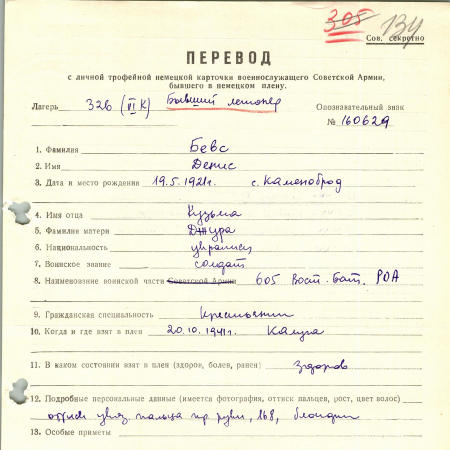 305 134
Сов. секретно
ПЕРЕВОД
с личной трофейной немецкой карточки военнослужащего Советской Армии,
бывшего в немецком плену.
Лагерь 326 (VI К) Бывший легионер Опознавательный знак
№ 160629
1. Фамилия Бевс
2. Имя Денис
3. Дата и место рождения 19.5.1921г. с. Каменоброд
4. Имя отца Кузьма
5. Фамилия матери
6. Национальность украинец
7. Воинское звание солдат
8. Наименование воинской части Советской Армии 605 Вост. Бат. РОА
9. Гражданская специальность Крестьянин
10. Когда и где взят в плен 20.10.1941г. Калуга
11. В каком состоянии взят в плен (здоров, болен, ранен) здоров
12. Подробные персональные данные (имеется фотография, оттиск пальцев, рост, цвет волос)
оттиск указ. пальца пр. руки, 168, блондин
13. Особые приметы